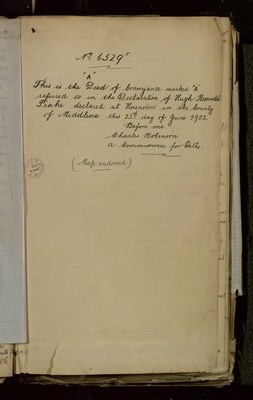 No 6529r.
"A"
This is the Deed of Conveyance marked "A"
referred to in the Declaration of Hugh
Peake declared at Hounslow in the County
of Middlesex this 25th day of June 1902
Before me
Charles Robinson
a Commissioner for Oaths
(Map endorsed)